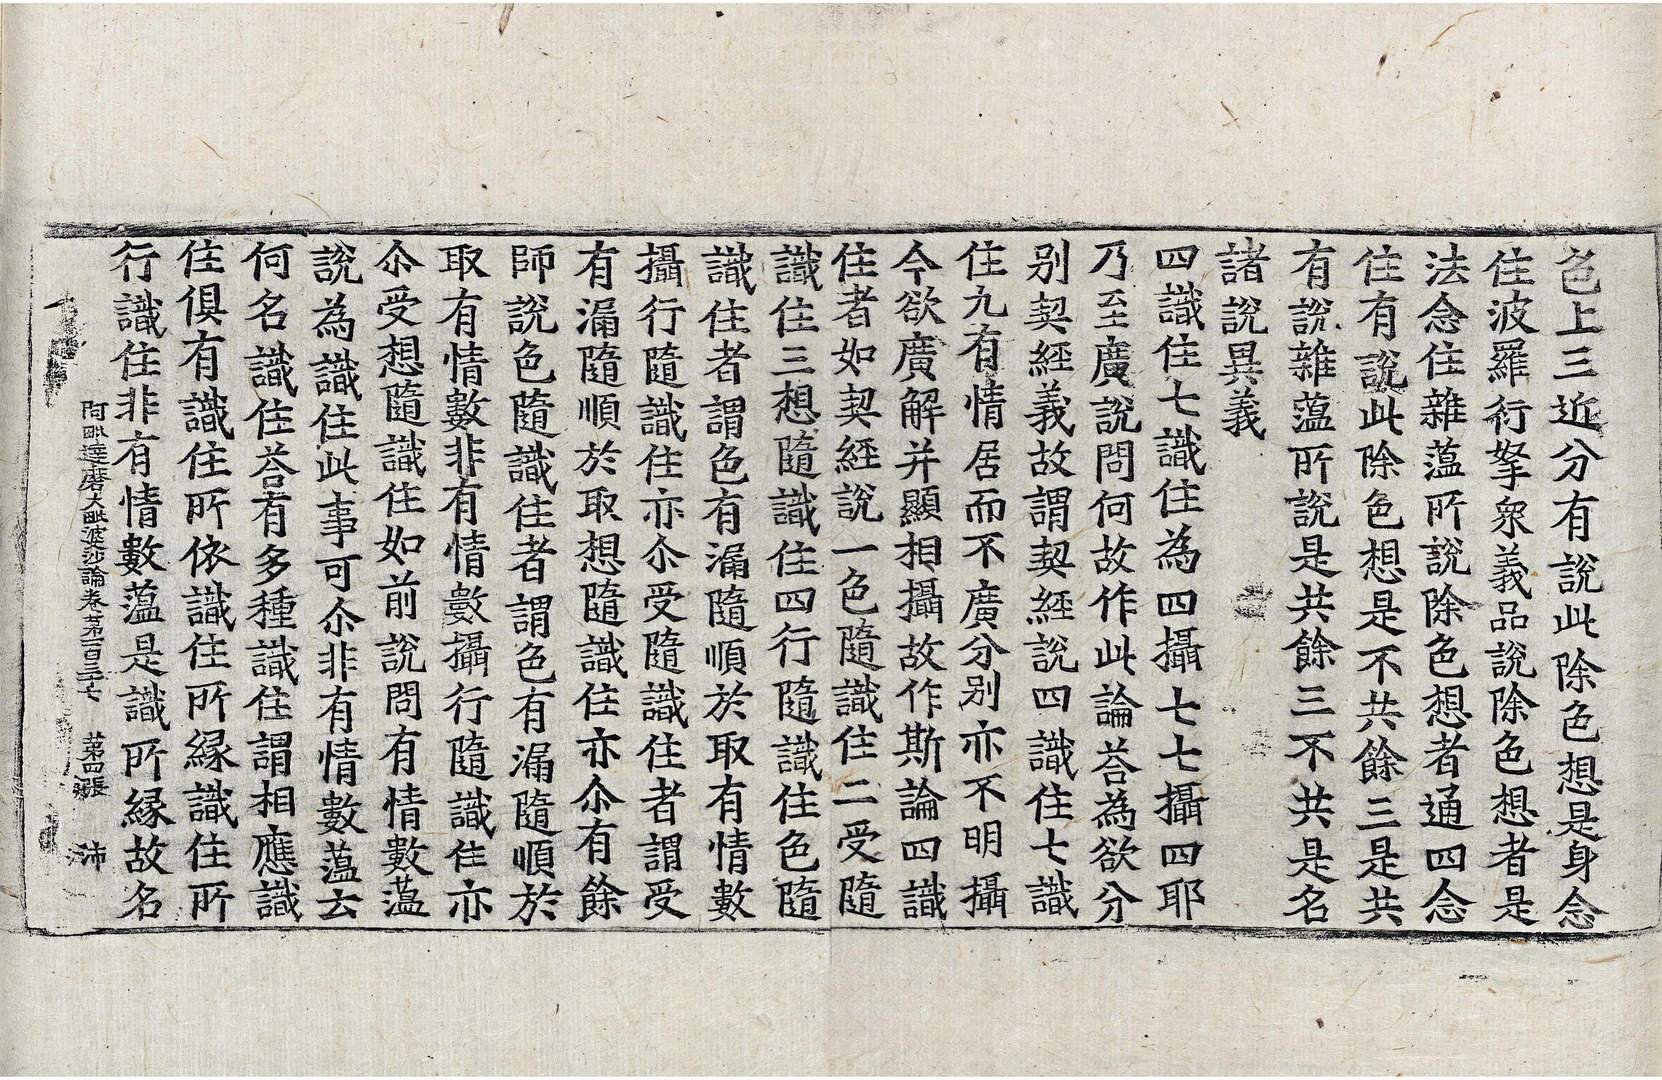 色上三近分有說此除色想是身念
住波羅衍拏衆義品說除色想者是
法念住雜薀所說除色想者通四念
住有說此除色想是不共餘三是共
有說雜薀所說是共餘三不共是名
諸說異義
四識住七識住為四攝七七攝四耶
乃至廣說問何故作此論荅為欲分
别契經義故謂契經說四識住七識
住九有情居而不廣分别亦不明攝
今欲廣解并顯相攝故作斯論四識
住者如契經說一色隨識住二受隨
識住三想隨識住四行隨識住色隨
識住者謂色有漏隨順於取有情數
攝行隨識住亦尒受隨識住者謂受
有漏隨順於取想隨識住亦尒有餘
師說色隨識住者謂色有漏隨順於
取有情數非有情數攝行隨識住亦
尒受想隨識住如前說問有情數薀
說為識住此事可尒非有情數薀去
何名識住荅有多種識住謂相應識
住俱有識住所依識住所緣識住所
行識住非有情數薀是識所緣故名
阿毗達磨大毗婆沙論卷苐一百三十七 苐四張 沛